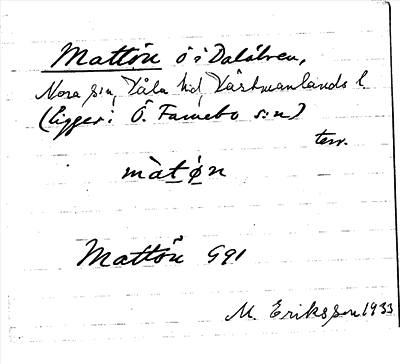 Mattön ö i Dalälven,
Nora sn, Våla hd, Västmanlands l.
(ligger i Ö. Färnebo s:n)
terr.
màtǿn
Mattön G91
M. Eriksson 1933